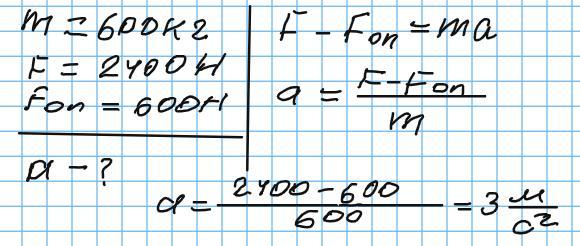 m = 600кг
F = 2400Н
Fоп = 600Н
a - ?
F - Fоп = ma
a = (F - Fоп) / m
a = (2400 - 600) / 600 = 3 м/с²